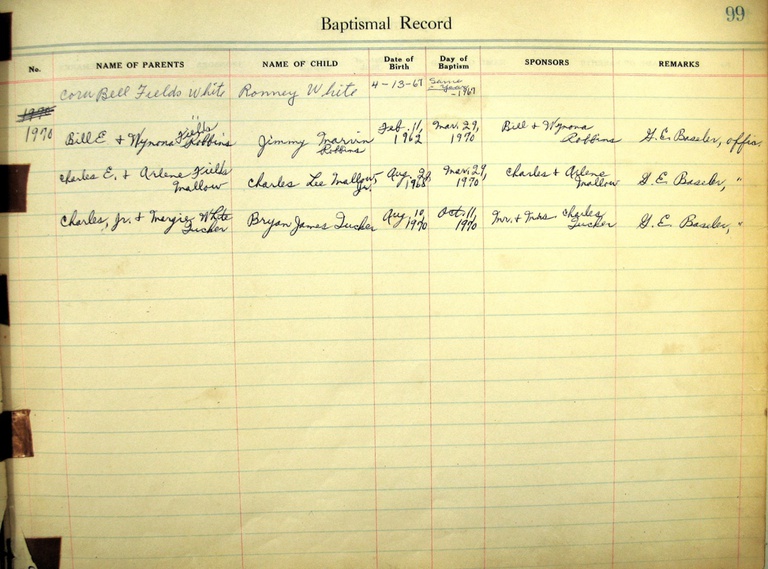 99
Baptismal Record
No. NAME OF PARENTS NAME OF CHILD Date of Birth Day of Baptism SPONSORS REMARKS
Cora Bell Fields White Ronney White 4-13-67 Same year -1967
1970
1970 Bill E & Wynona Fields Robbins Jimmy Marvin Robbins Feb. 11, 1962 Mar. 29, 1970 Bill & Wynona Robbins G. E. Baseler, offic.
Charles E. & Arlene Fields Mallow Charles Lee Mallow, Jr. Aug. 1968 Mar. 29, 1970 Charles & Arlene Mallow G. E. Baseler, "
Charles, Jr. & Margie White Tucker Bryan James Tucker Aug. 10, 1970 Oct. 11, 1970 Mr. & Mrs. Charles Tucker G. E. Baseler, "